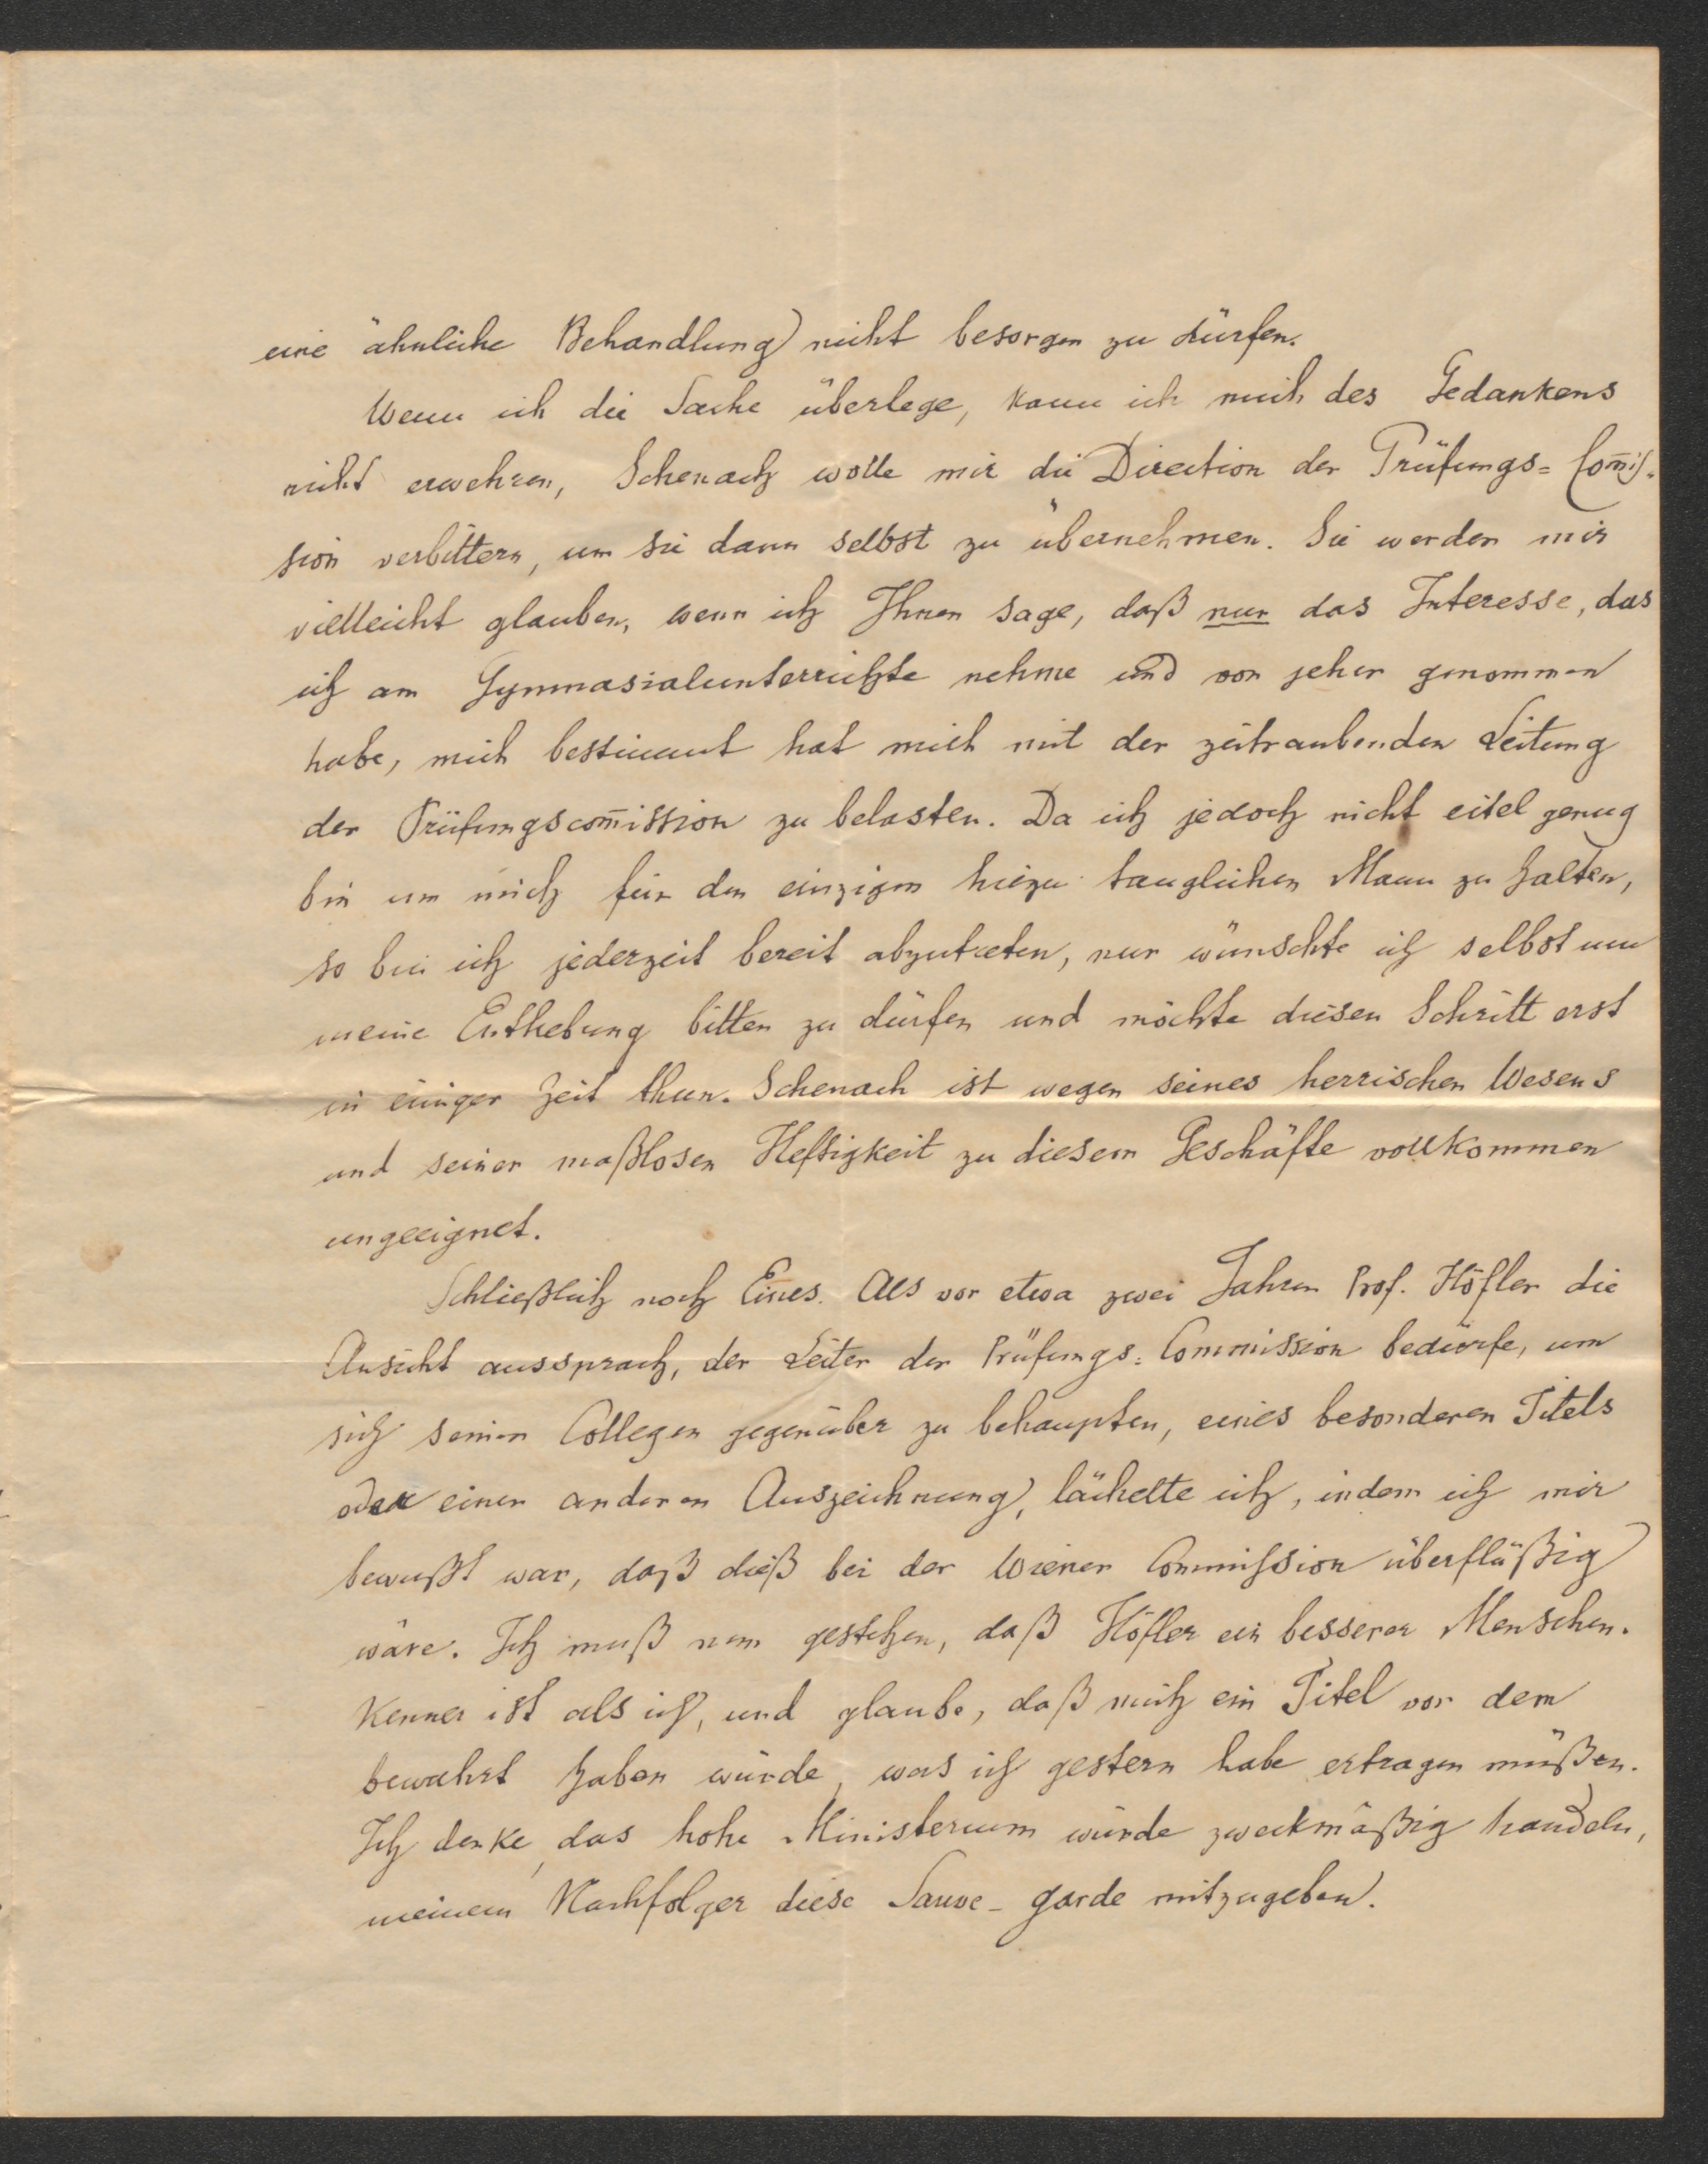 eine ähnliche Behandlung nicht besorgen zu dürfen.
Wenn ich die Sache überlege, kann ich mich des Gedankens
nicht erwehren, Schenach wolle mir die Direction der Prüfungs= Com̄is-
sion verbittern, um sie dann selbst zu übernehmen. Sie werden mir
vielleicht glauben, wenn ich Ihnen sage, daß nur das Interesse, das
ich am Gymnasialunterrichte nehme und von jeher genommen
habe, mich bestimmt hat mich mit der zeitraubenden Leitung
der Prüfungscom̄ission zu belasten. Da ich jedoch nicht eitel genug
bin um mich für den einzigen hiezu tauglichen Mann zu halten,
so bin ich jederzeit bereit abzutreten, nur wünschte ich selbst um
meine Enthebung bitten zu dürfen und möchte diesen Schritt erst
in einiger Zeit thun. Schenach ist wegen seines herrischen Wesens
und seiner maßlosen Heftigkeit zu diesem Geschäfte vollkommen
ungeeignet.
Schließlich noch Eines. Als vor etwa zwei Jahren Prof. Höfler die
Ansicht aussprach, der Leiter der Prüfungs= Commission bedürfe, um
sich seinen Collegen gegenüber zu behaupten, eines besonderen Titels
oder einer anderen Auszeichnung, lächelte ich, indem ich mir
bewußt war, daß dieß bei der Wiener Commission überflüßig
wäre. Ich muß nun gestehen, daß Höfler ein besserer Menschen-
kenner ist als ich, und glaube, daß mich ein Titel vor dem
bewahrt haben würde, was ich gestern habe ertragen müßen.
Ich denke, das hohe Ministerium würde zweckmäßig handeln,
meinem Nachfolger diese Sauve-garde mitzugeben.